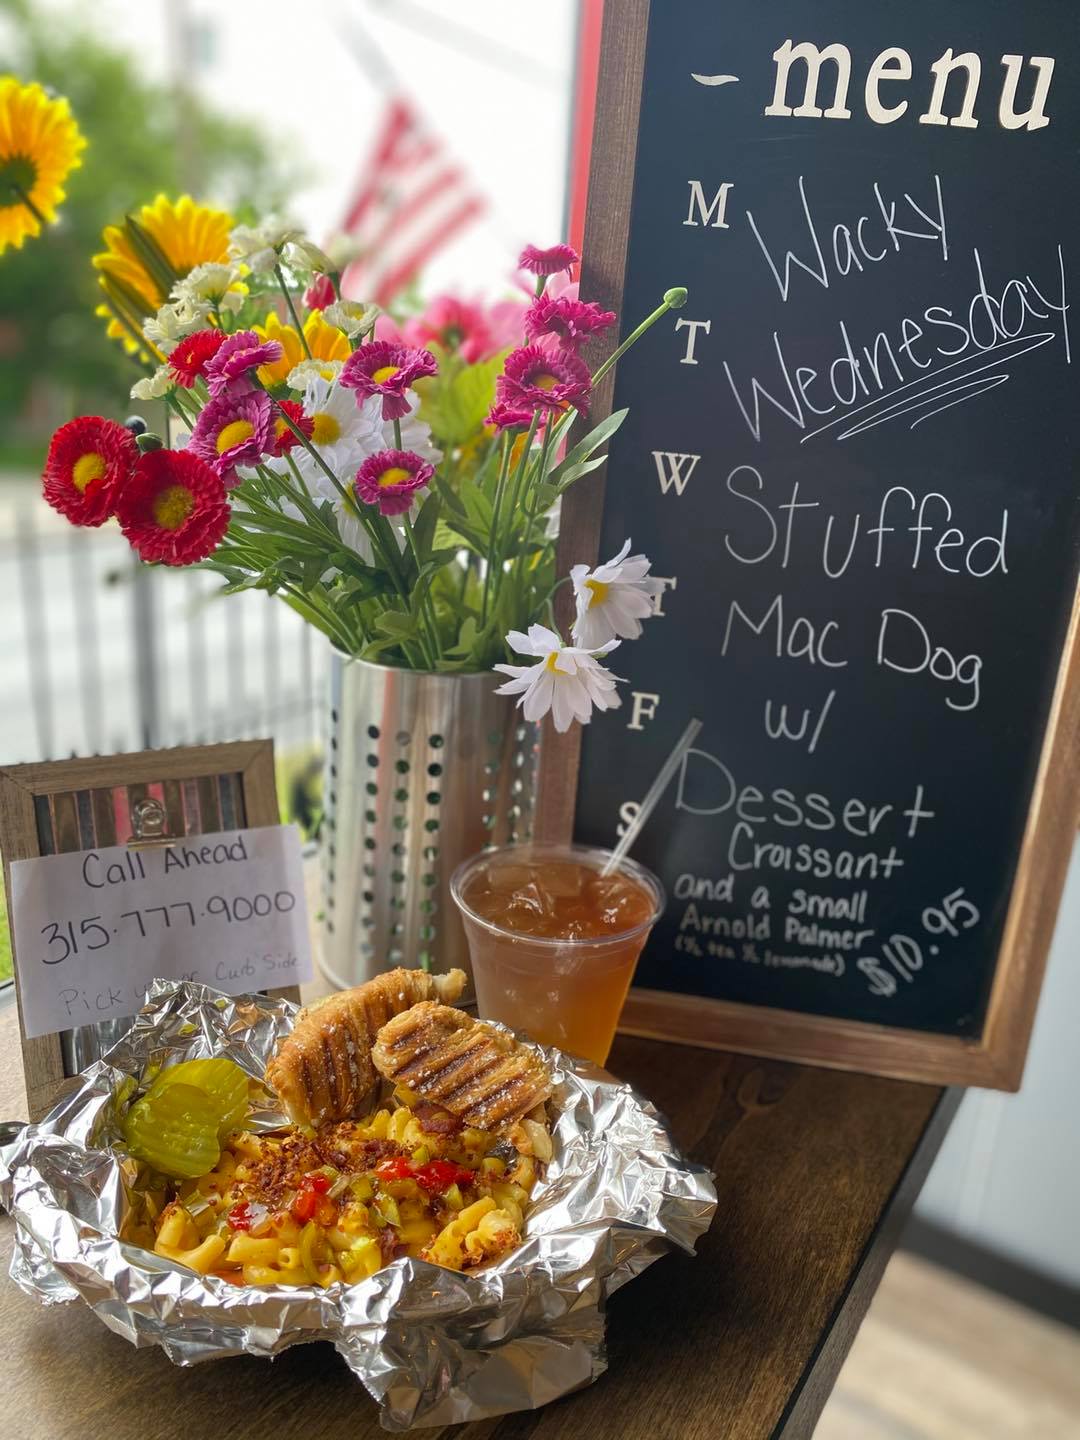 menu
M
T
W
T
F
S
Wacky
Wednesday
Stuffed
Mac Dog
w/
Dessert
Croissant
and a small
Arnold Palmer
(½ tea ½ lemonade)
$10.95
Call Ahead
315.777.9000
Pick up or Curb Side